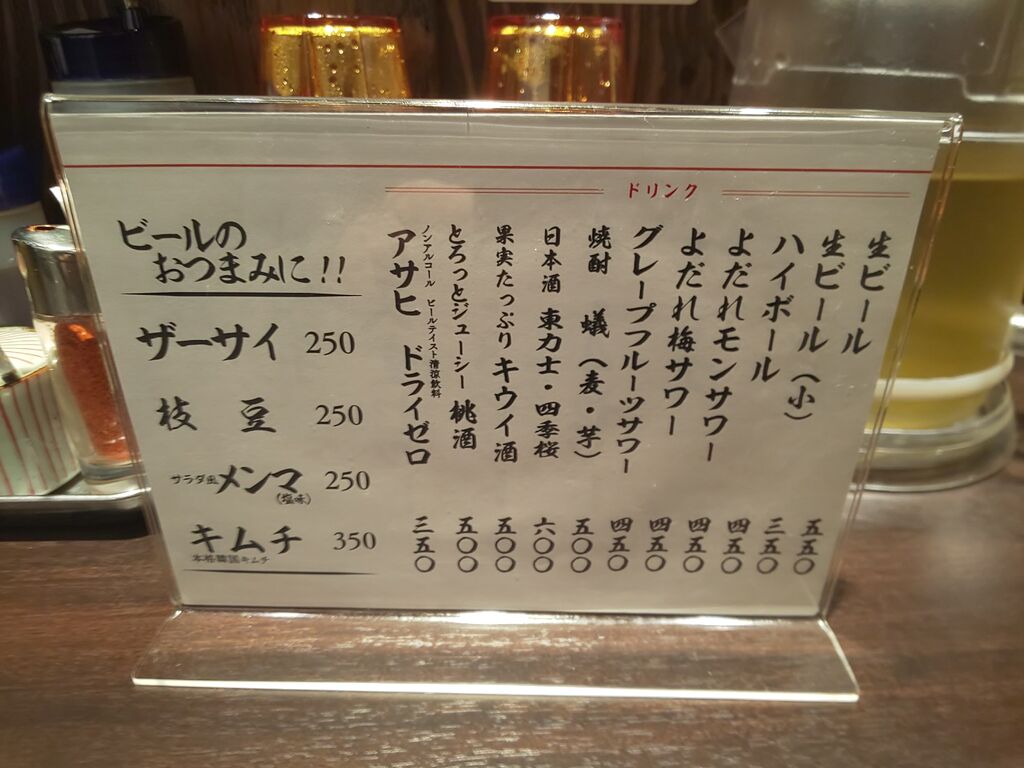 ドリンク
生ビール 五五〇
生ビール（小） 三五〇
ハイボール 四五〇
よだれモンサワー 四五〇
よだれ梅サワー 四五〇
グレープフルーツサワー 四五〇
焼酎 蟻（麦・芋） 五〇〇
日本酒 東力士・四季桜 六〇〇
果実たっぷりキウイ酒 五〇〇
とろっとジューシー桃酒 五〇〇
ノンアルコール ビールテイスト清涼飲料
アサヒ ドライゼロ 三五〇
ビールの
おつまみに!!
ザーサイ 250
枝豆 250
サラダ風メンマ(塩味) 250
キムチ 350
本格韓国キムチ